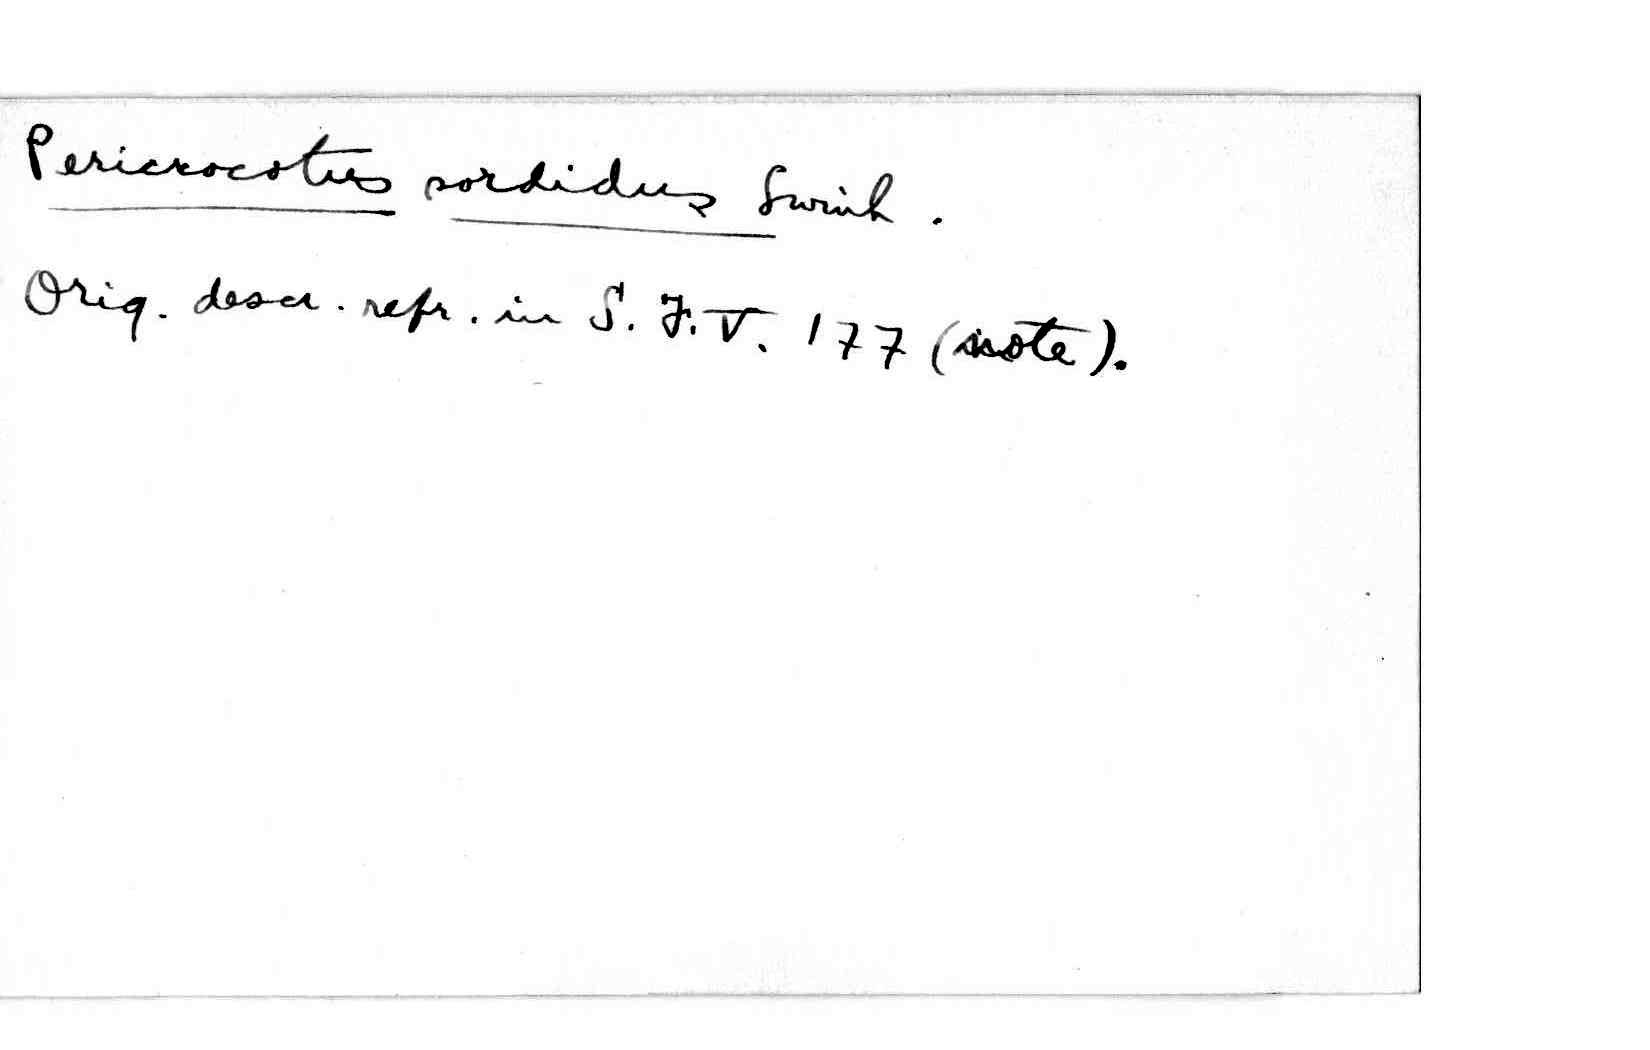 Pericrocotus sordidus Swinh.
Orig. descr. repr. in S. F. V. 177 (note).